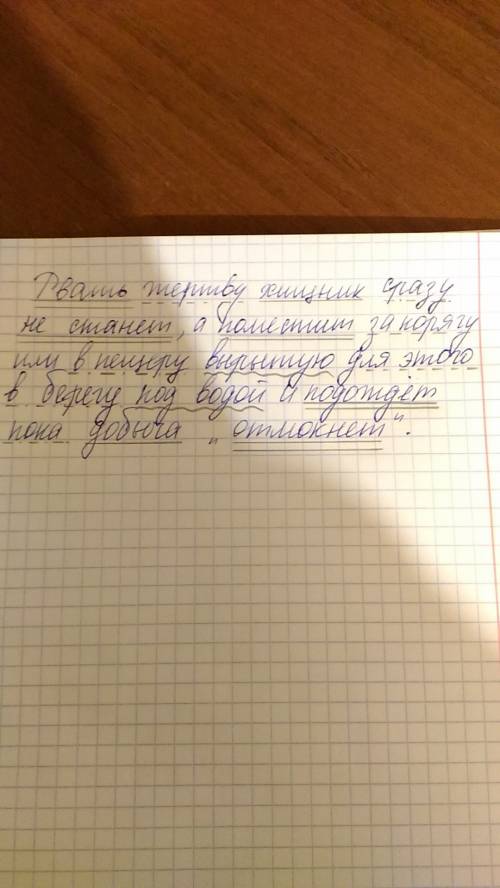 Рвать жертву хищник сразу
не станет, а поместит за корягу
или в пещеру вырытую для этого
в берегу под водой и подождёт
пока добыча "отмокнет".